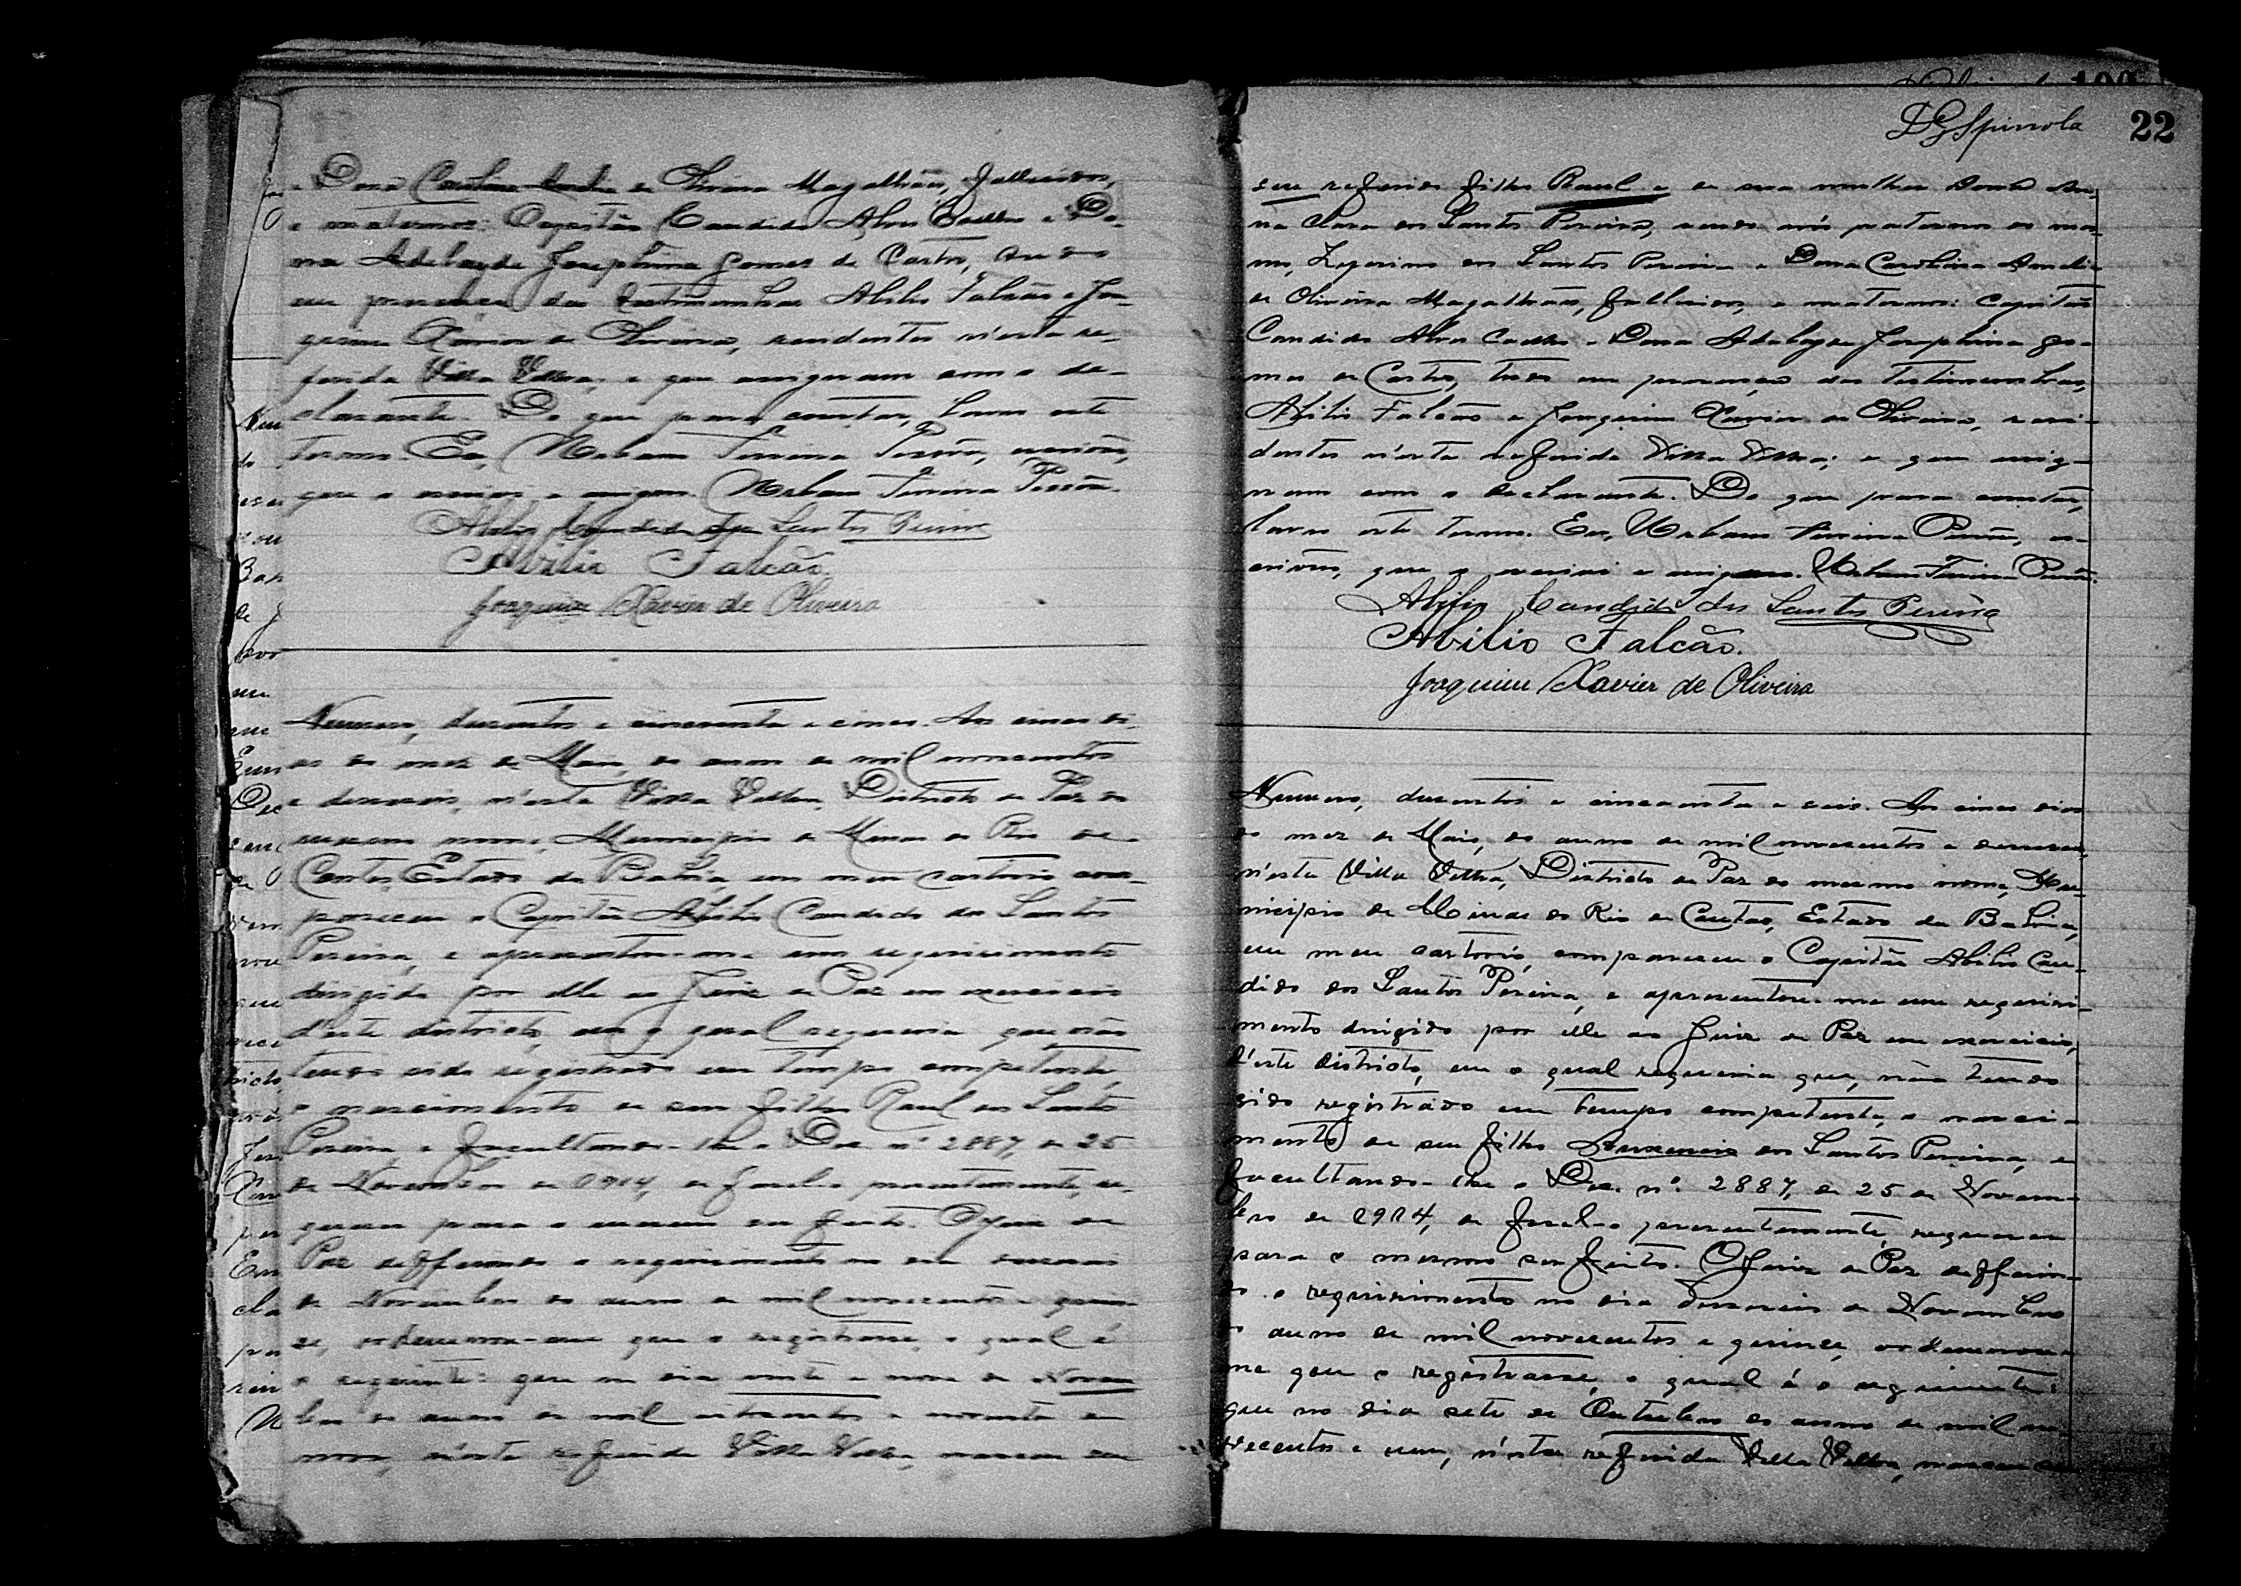 e Dona Carolina Amelia de Oliveira Magalhães, fallecidos,
e maternos: Capitão Candido Alves Coelho e Do-
na Adelayde Josephina Gomes de Castro, tudo
em presença das testimonhas Abilio Falcão e Joa-
quim Xavier de Oliveira, residentes n'esta re-
ferida Villa Velha, e que assignam com o de-
clarante. Do que para constar, lavro este
termo. Eu, Urbano Pessôa, escrivão,
que o escrevi e assigno. Urbano Pessôa.
Abilio Candido dos Santos Pereira
Abilio Falcão
Joaquim Xavier de Oliveira
Numero, duzentos e cincoenta e cinco. Aos cinco di-
as do mez de Maio, do anno de mil novecentos
e dezeseis, n'esta Villa Velha, Districto de Paz do
mesmo nome, Municipio de Minas do Rio de
Contas, Estado da Bahia, em meu cartorio com-
pareceu o Capitão Abilio Candido dos Santos
Pereira, e apresentou-me um requerimento
dirigido por elle ao Juiz de Paz em exercicio
d'este districto, em o qual requeria que não
tendo sido registrado em tempo competente,
o nascimento de seu filho Raul dos Santos
Pereira, e facultando-lhe o Dec. nº 2887, de 25
de Novembro de 1914, de fazel-o presentemente, re-
queria para o mesmo ser feito. O Juiz de
Paz defferindo o requerimento no dia dezeseis
de Novembro do anno de mil novecentos e quin-
ze, ordenou-me que o registrasse, o qual é
o seguinte: que no dia vinte e nove de Novem-
bro do anno de mil oitocentos e noventa e
nove, n'esta referida Villa Velha, nasceu seu
DGSpinola 22
seu referido filho Raul e de sua mulher Dona An-
na Clara dos Santos Pereira, sendo avós paternos os mes-
mos, Zeferino dos Santos Pereira e Dona Carolina Amelia
de Oliveira Magalhães, fallecidos, e maternos: Capitão
Candido Alves Coelho e Dona Adelayde Josephina Go-
mes de Castro, tudo em presença das testimonhas,
Abilio Falcão e Joaquim Xavier de Oliveira, resi-
dentes n'esta referida Villa Velha; e que assig-
nam com o declarante. Do que para constar,
lavro este termo. Eu, Urbano Pessôa, es-
crivão, que o escrevi e assigno. Urbano Pessôa.
Abilio Candido dos Santos Pereira
Abilio Falcão.
Joaquim Xavier de Oliveira
Numero, duzentos e cincoenta e seis. Aos cinco dias
do mez de Maio, do anno de mil novecentos e dezeseis,
n'esta Villa Velha, Districto de Paz do mesmo nome, Mu-
nicipio de Minas do Rio de Contas, Estado da Bahia,
em meu cartorio, compareceu o Capitão Abilio Can-
dido dos Santos Pereira, e apresentou-me um requeri-
mento dirigido por elle ao Juiz de Paz em exercicio,
d'este districto, em o qual requeria que, não tendo
sido registrado em tempo competente, o nasci-
mento de seu filho dos Santos Pereira, e
facultando-lhe o Dec. nº. 2887, de 25 de Novem-
bro de 1914, de fazel-o presentemente, requeria
para o mesmo ser feito. O Juiz de Paz defferin-
do o requerimento no dia dezeseis de Novembro
do anno de mil novecentos e quinze, ordenou-
me que o registrasse, o qual é o seguinte:
que no dia sete de Outubro do anno de mil no-
vecentos e um, n'esta referida Villa Velha, nasceu seu